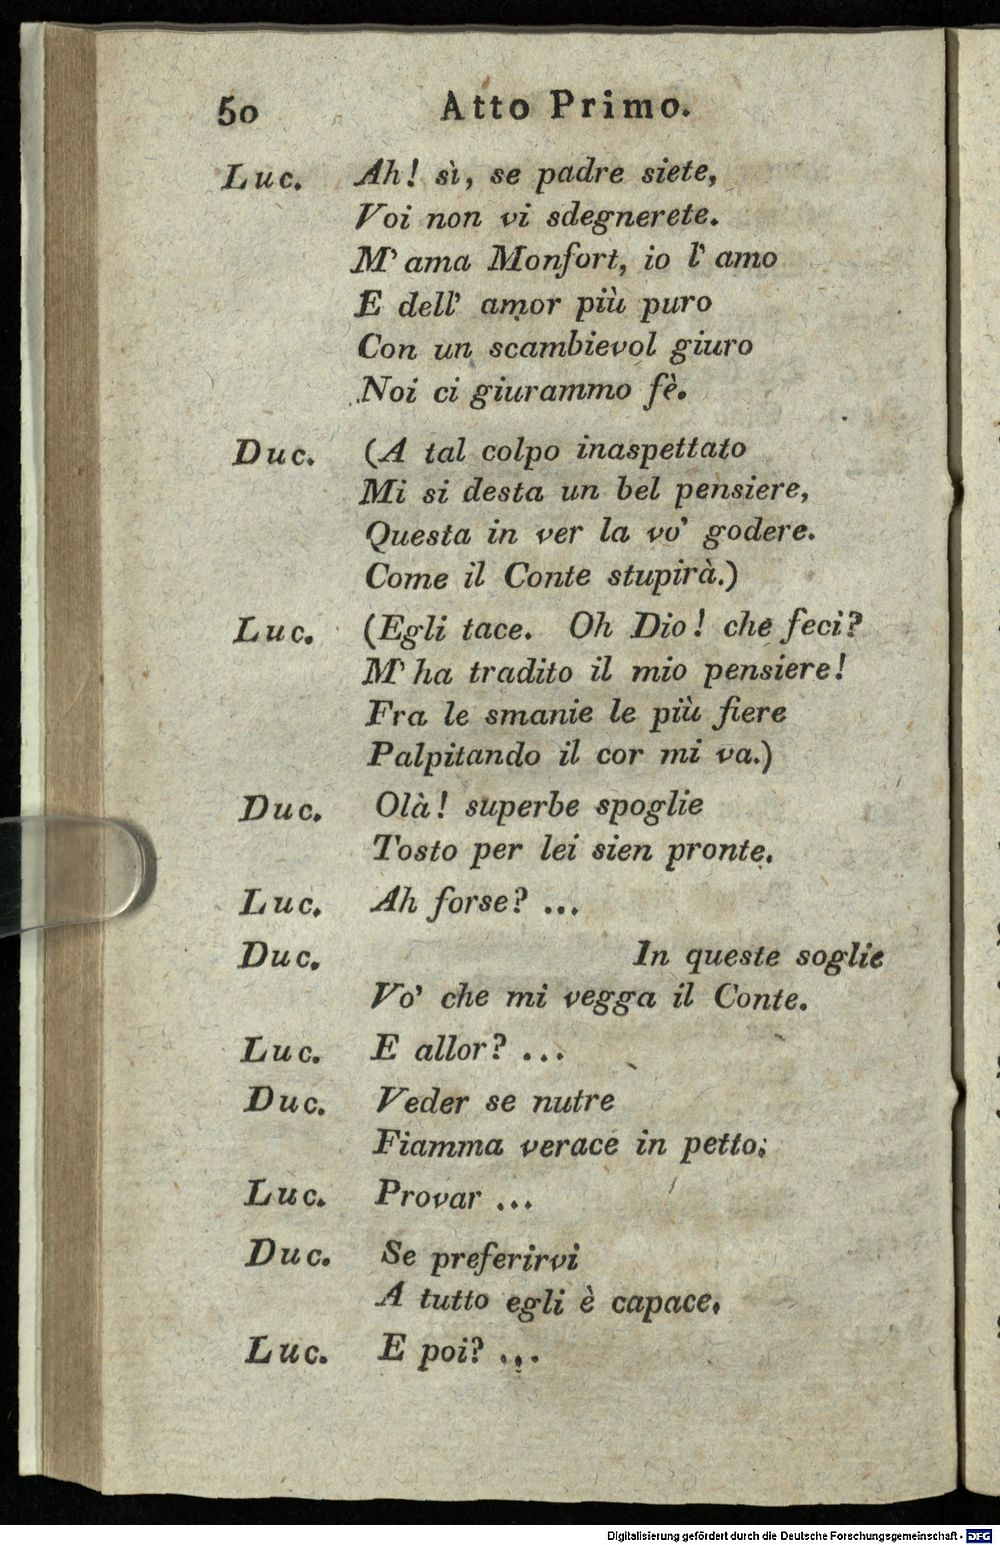 50 Atto Primo.
Luc. Ah! sì, se padre siete,
Voi non vi sdegnerete.
M' ama Monfort, io l' amo
E dell' amor più puro
Con un scambievol giuro
Noi ci giurammo fè.
Duc. (A tal colpo inaspettato
Mi si desta un bel pensiere,
Questa in ver la vo' godere.
Come il Conte stupirà.)
Luc. (Egli tace. Oh Dio! che feci?
M' ha tradito il mio pensiere!
Fra le smanie le più fiere
Palpitando il cor mi va.)
Duc. Olà! superbe spoglie
Tosto per lei sien pronte.
Luc. Ah forse? ...
Duc. In queste soglie
Vo' che mi vegga il Conte.
Luc. E allor? ...
Duc. Veder se nutre
Fiamma verace in petto;
Luc. Provar ...
Duc. Se preferirvi
A tutto egli è capace.
Luc. E poi? ...
Digitalisierung gefördert durch die Deutsche Forschungsgemeinschaft - DFG